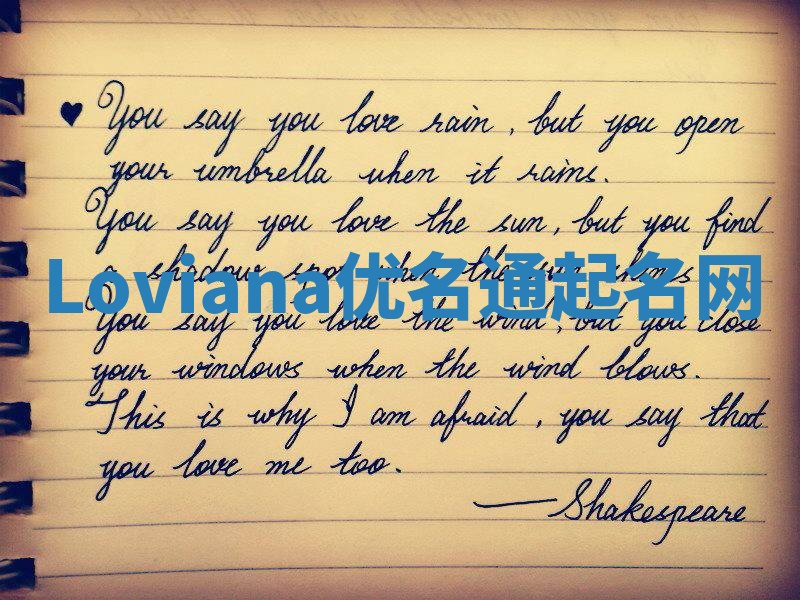 ♥ You say you love rain, but you open
your umbrella when it rains.
You say you love the sun, but you find
a shadow spot when the sun shines
Loviana优名通起名网
You say you love the wind, but you close
your windows when the wind blows.
This is why I am afraid, you say that
you love me too.
—Shakespeare